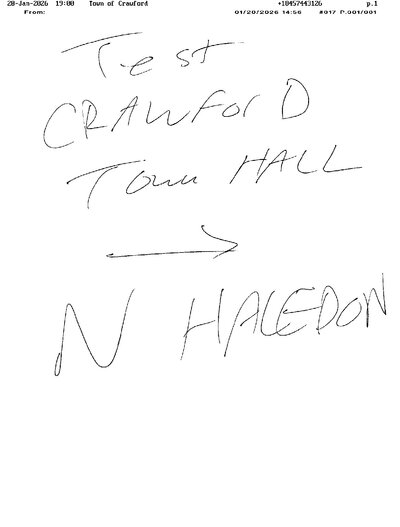 20-Jan-2026 19:00 Town of Crawford +18457443126 p.1
From: 01/20/2026 14:56 #017 P.001/001
Test
CRAWFORD
Town HALL
→
N HALEDON